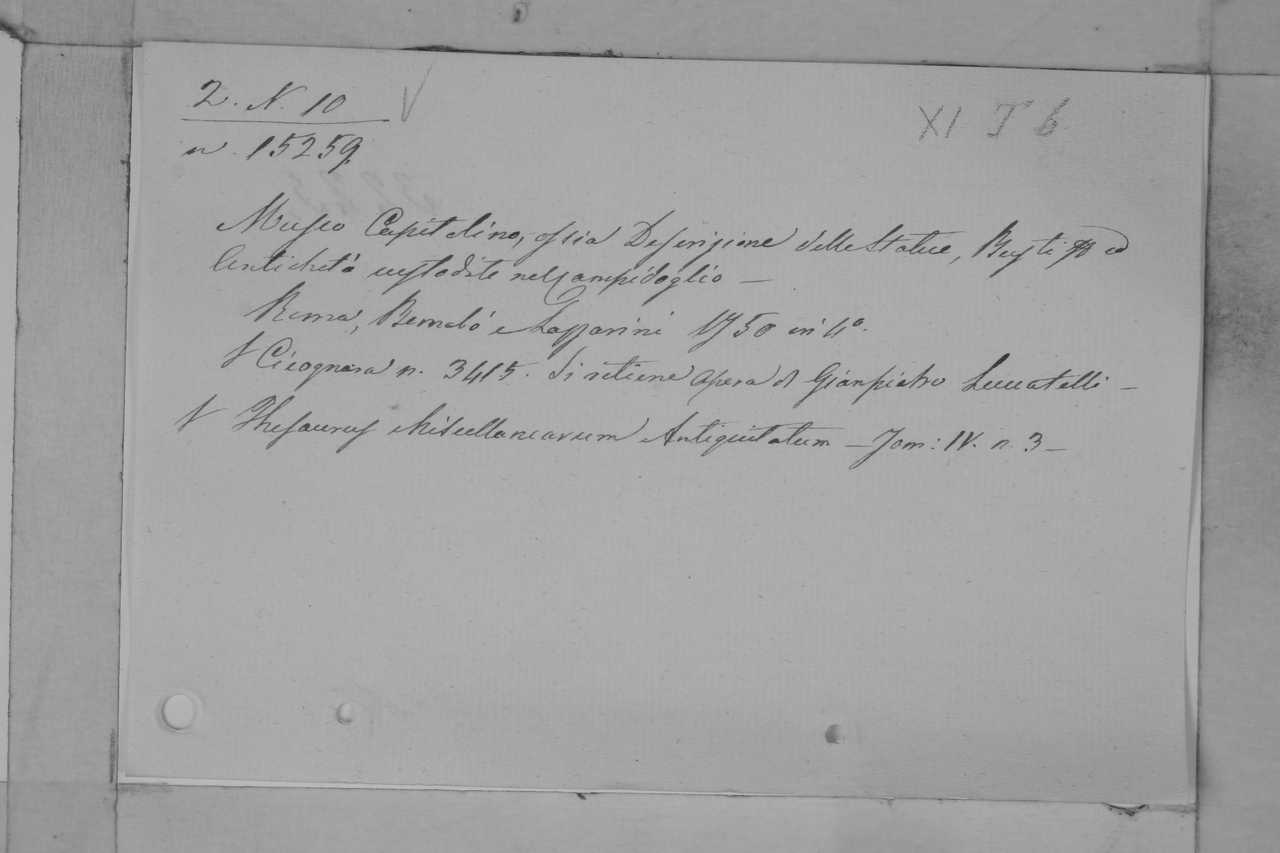 2. N. 10
XI T 6
n. 15259
Museo Capitolino, ossia Descrizione delle Statue, Busti ed
Antichità custodite nel Campidoglio —
Roma, Bernabò e Lazzarini 1750 in 4°.
Cicognara n. 3415. Si ritiene opera di Gianpietro Luccatelli —
Thesaurus Miscellanearum Antiquitatum — Tom: IV. n. 3 —